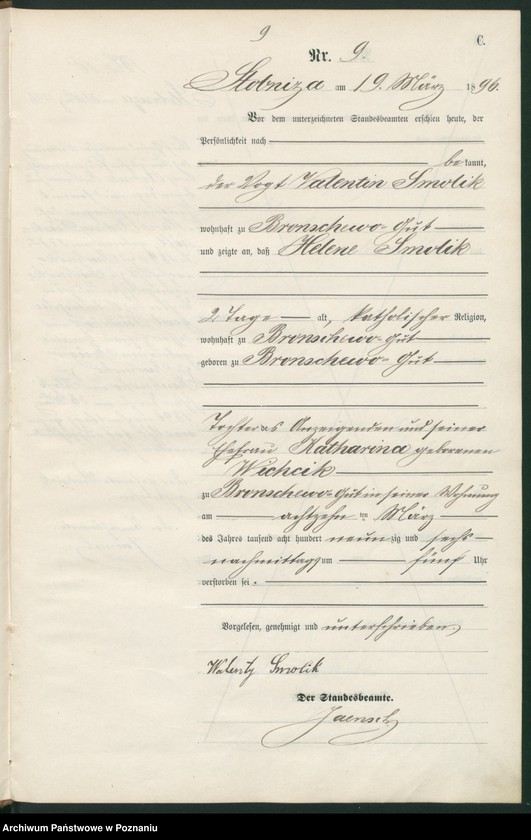 9
C.
Nr. 9.
Stobniza am 19. März 1896.
Vor dem unterzeichneten Standesbeamten erschien heute, der
Persönlichkeit nach
bekannt,
der Vogt Valentin Smolik
wohnhaft zu Bronschewo-Gut
und zeigte an, daß Helene Smolik
2 Tage alt, katholischer Religion,
wohnhaft zu Bronschewo-Gut
geboren zu Bronschewo-Gut
Tochter des Anzeigenden und seiner
Ehefrau Katharina geborenen
Wichcik
zu Bronschewo-Gut in seiner Wohnung
am achtzehn ten März
des Jahres tausend acht hundert neunzig und sechs
nachmittags um fünf Uhr
verstorben sei.
Vorgelesen, genehmigt und unterschrieben
Walenty Smolik
Der Standesbeamte.
Jaensch
Archiwum Państwowe w Poznaniu